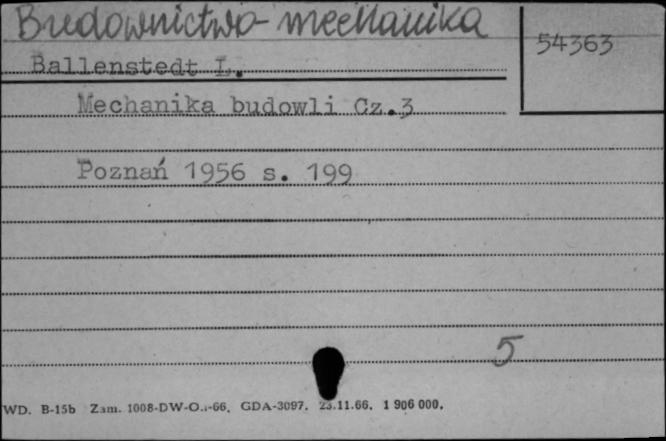 Budownictwo-mechanika
54363
Ballenstedt L.
Mechanika budowli Cz.3
Poznań 1956 s. 199
5
WD. B-15b Zam. 1008-DW-O.-66. GDA-3097. 23.11.66. 1 906 000.